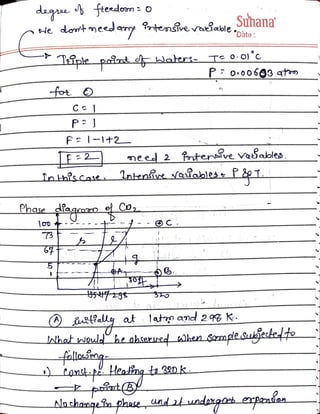 degree of freedom = 0
We don't need any intensive variable.
Suhana
Date:
Triple point of Waters - T = 0.01°C
P = 0.00603 atm
for
C = 1
P = 1
F = 1-1+2
F = 2 need 2 intensive variables
In this case, Intensive variables P & T.
Phase diagram of CO2
100
73
67
5
1
s
l
g
C
A
B
298
320
(A) initially at 1 atm and 298 K.
What would be observed when sample subjected to
following-
1) const. pr. Heating to 320K.
point (B)
No change in phase, and it undergoes expansion